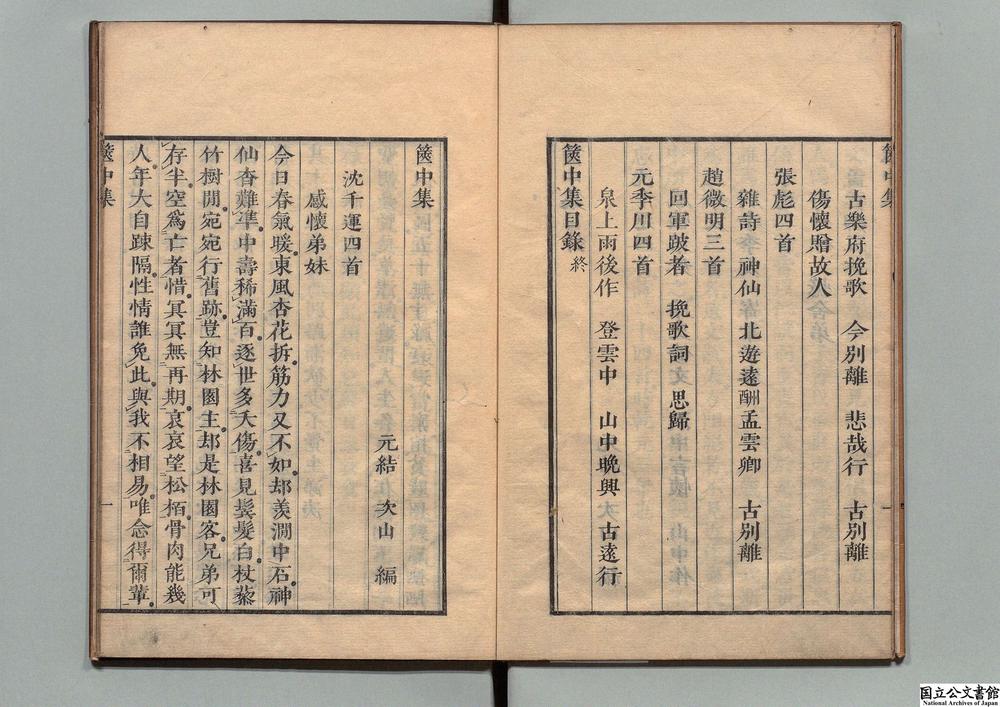 篋中集
古樂府挽歌 今別離 悲哉行 古別離
傷懷贈故人
張彪四首
雜詩 神仙 北遊還酬孟雲卿 古別離
趙微明三首
回軍跛者 挽歌詞 思歸
元季川四首
泉上雨後作 登雲中 山中晚興 古遠行
篋中集目錄終
一
篋中集
元結 次山 編
沈千運四首
感懷弟妹
今日春氣暖東風杏花拆筋力又不如却羨澗中石神
仙杳難準中壽稀滿百逐世多夭傷喜見鬂髮白杖藜
竹樹間宛宛行舊跡豈知林園主却是林園客兄弟可
存半空爲亡者惜冥冥無再期哀哀望松栢骨肉能幾
人年大自疎隔性情誰免此與我不相易唯念得爾輩
篋中集
一
国立公文書館
National Archives of Japan